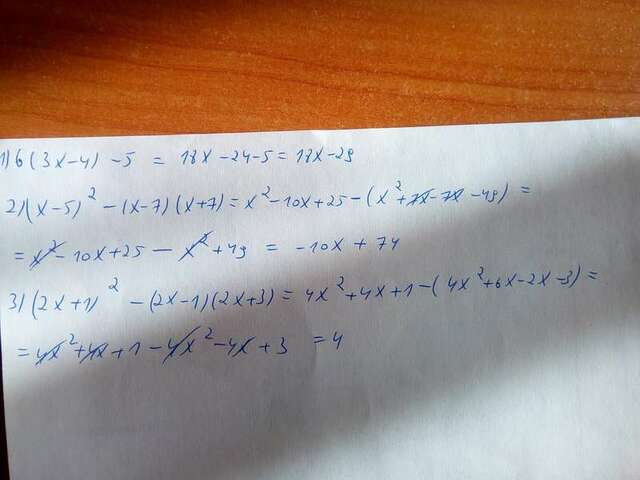 1) 6(3x-4) -5 = 18x-24-5 = 18x-29
2) (x-5)² - (x-7)(x+7) = x²-10x+25-(x²+7x-7x-49) =
= x²-10x+25 - x²+49 = -10x+74
3) (2x+1)² - (2x-1)(2x+3) = 4x²+4x+1-(4x²+6x-2x-3) =
= 4x²+4x+1-4x²-4x+3 = 4